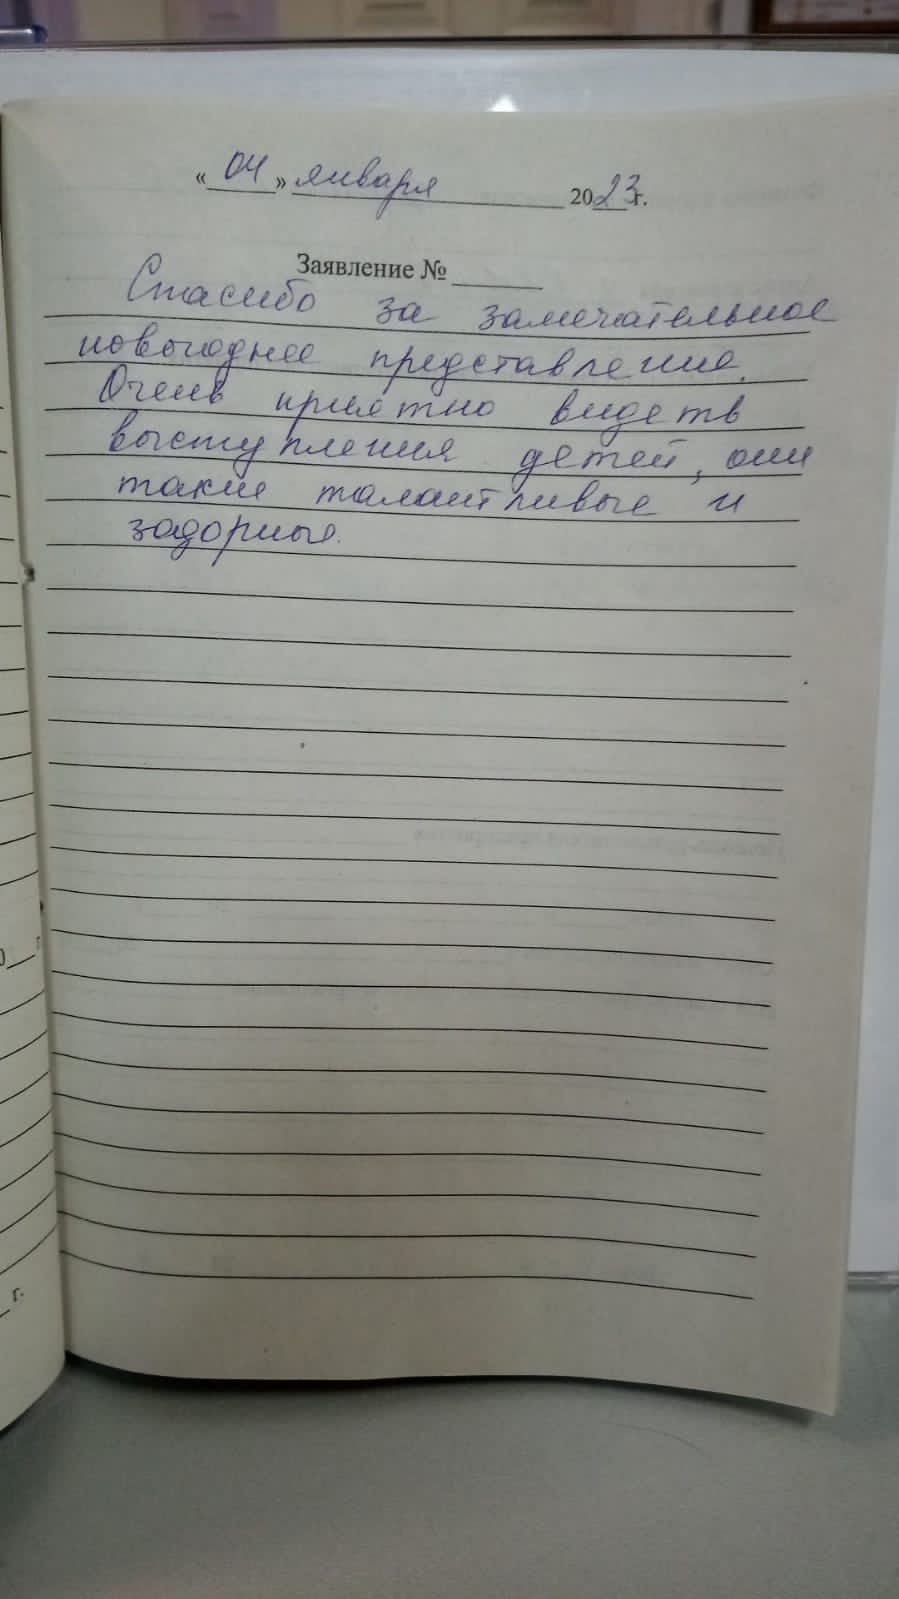 «04» января 2023г.
Заявление №
Спасибо за замечательное
новогоднее представление.
Очень приятно видеть
выступления детей, они
такие талантливые и
задорные.
0 г
г.